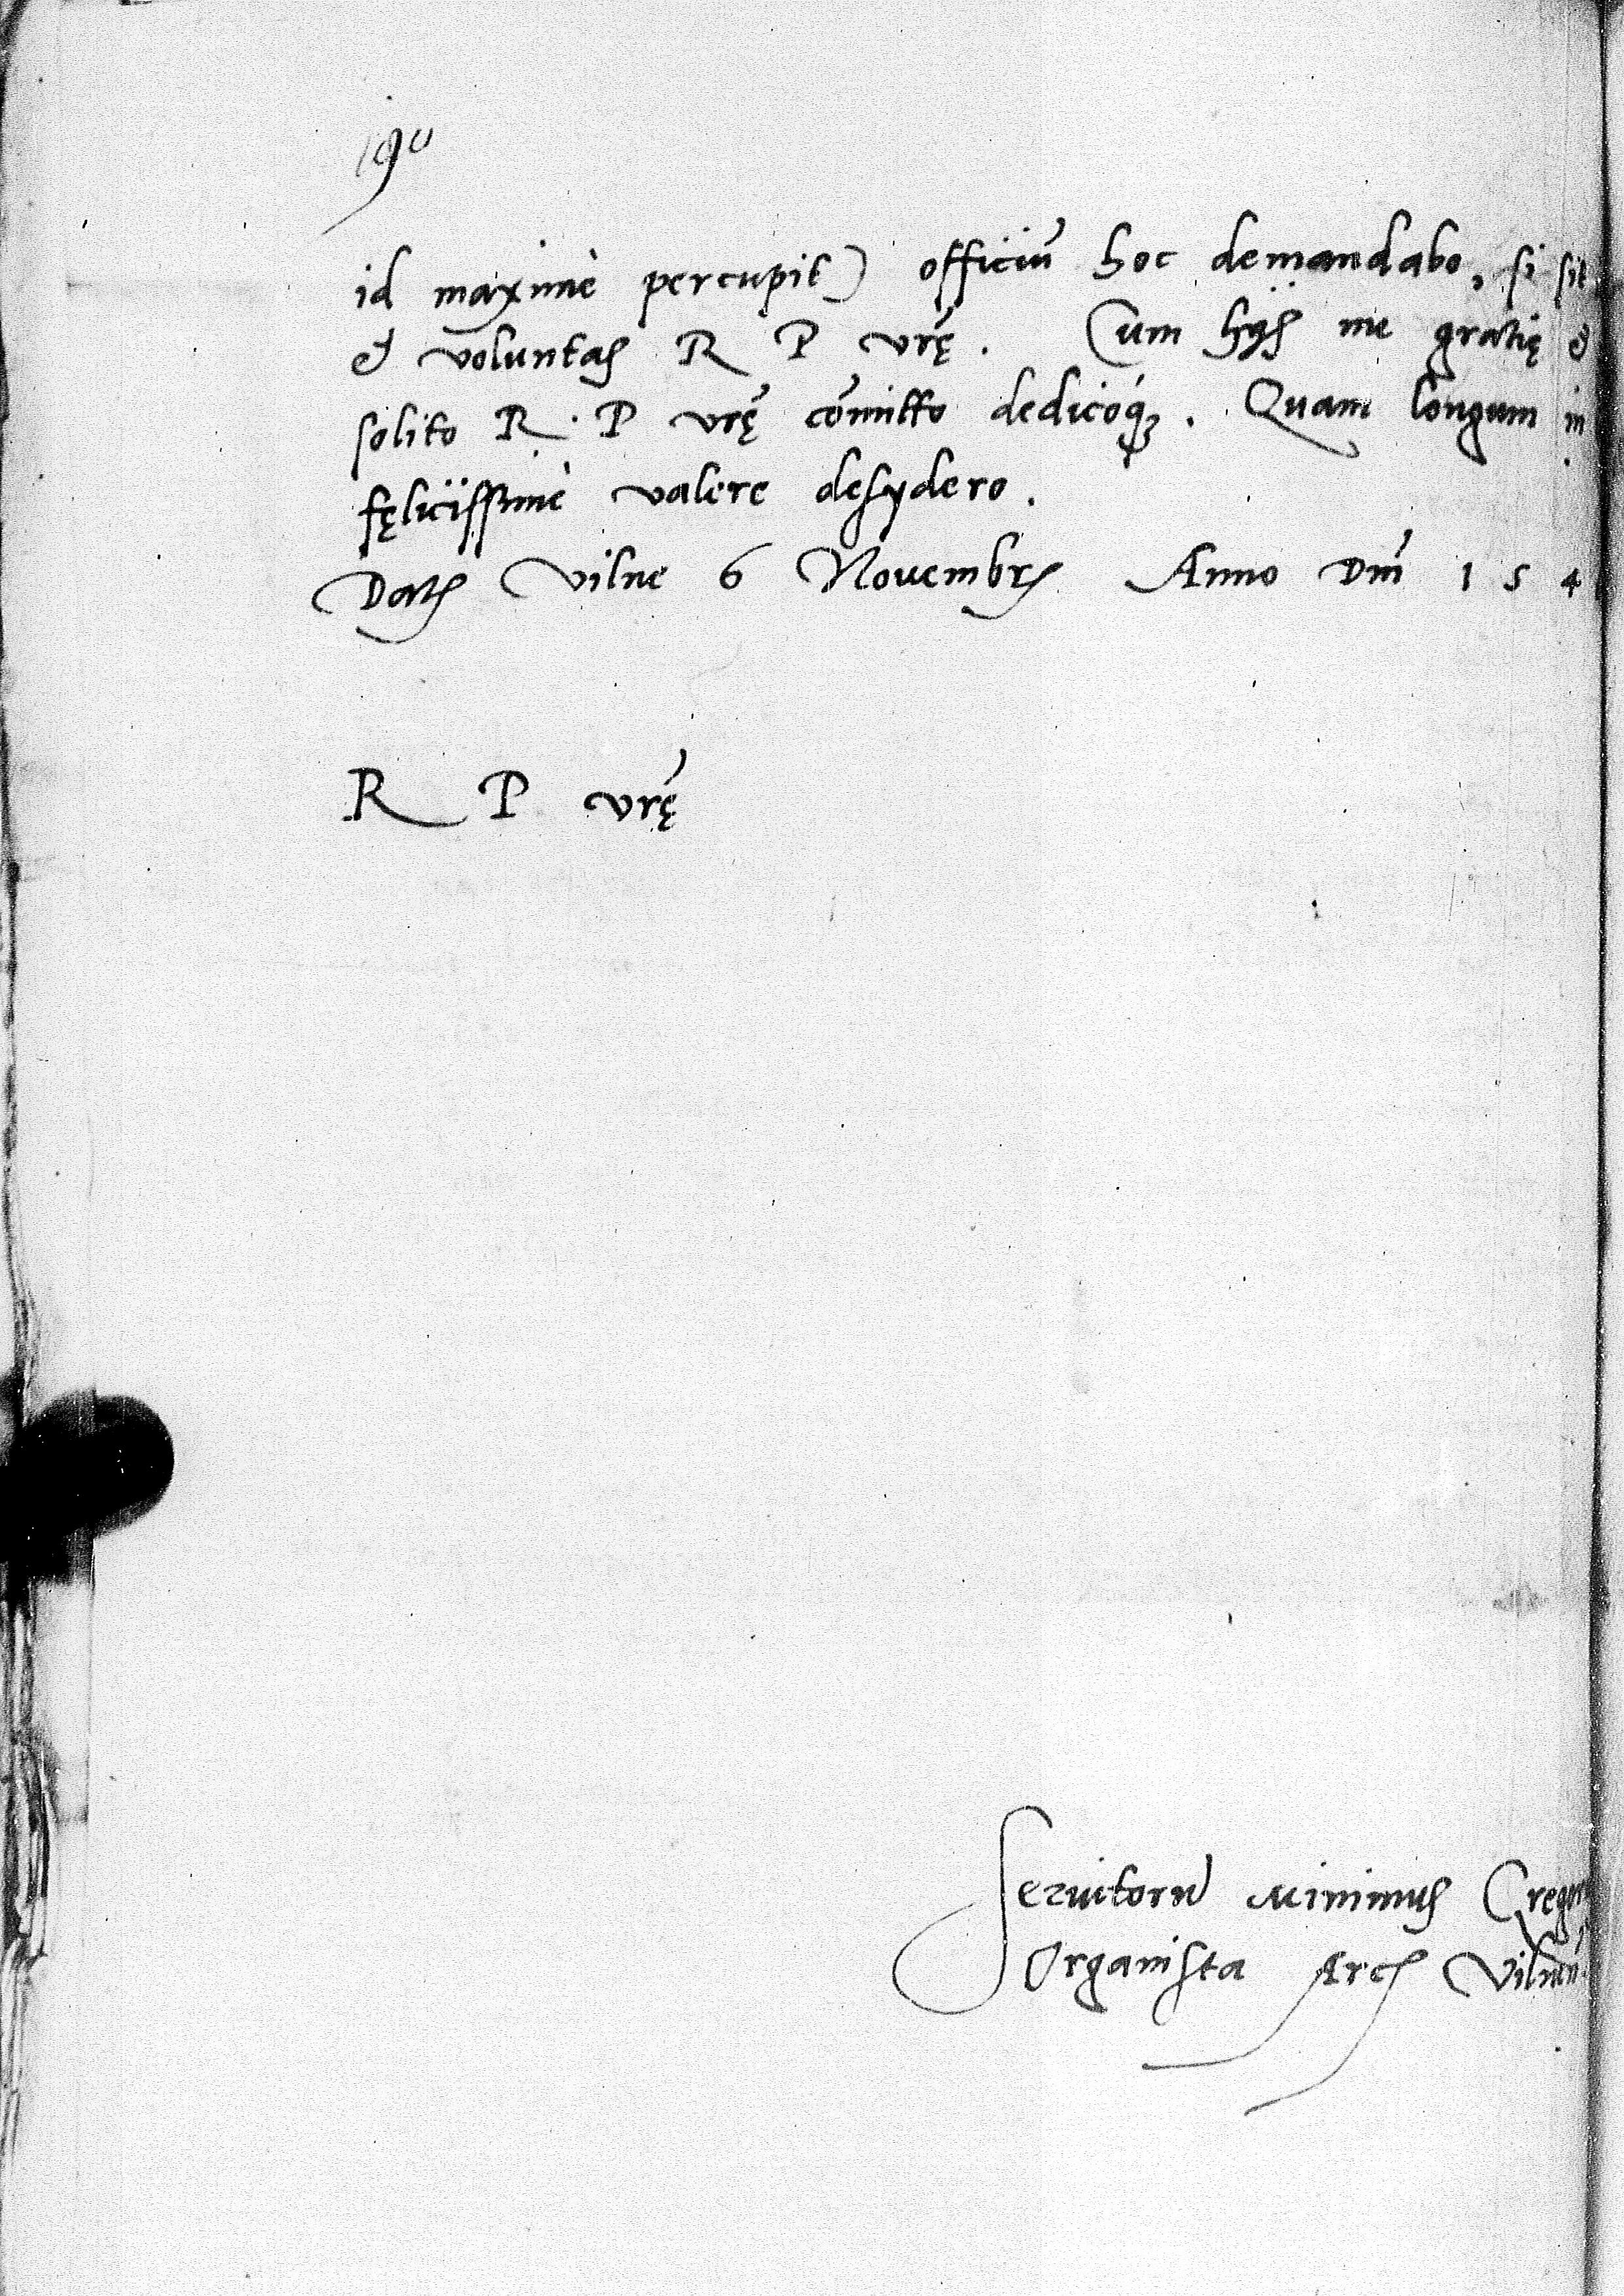 190
id maxime percupit) officiū hoc demandabo, si sit
et voluntas R P vrę. Cum hijs me gratię et
solito R. P vrę cōmitto dedicoq́ꝫ. Quam longum in
fęlicissimè valere desydero.
Datꝭ Vilne 6 Novembrꝭ Anno Dn̄i 1 5 4
R P vrę
Servitorū Minimus Gregor
Organista Arcꝭ Vilnen̄